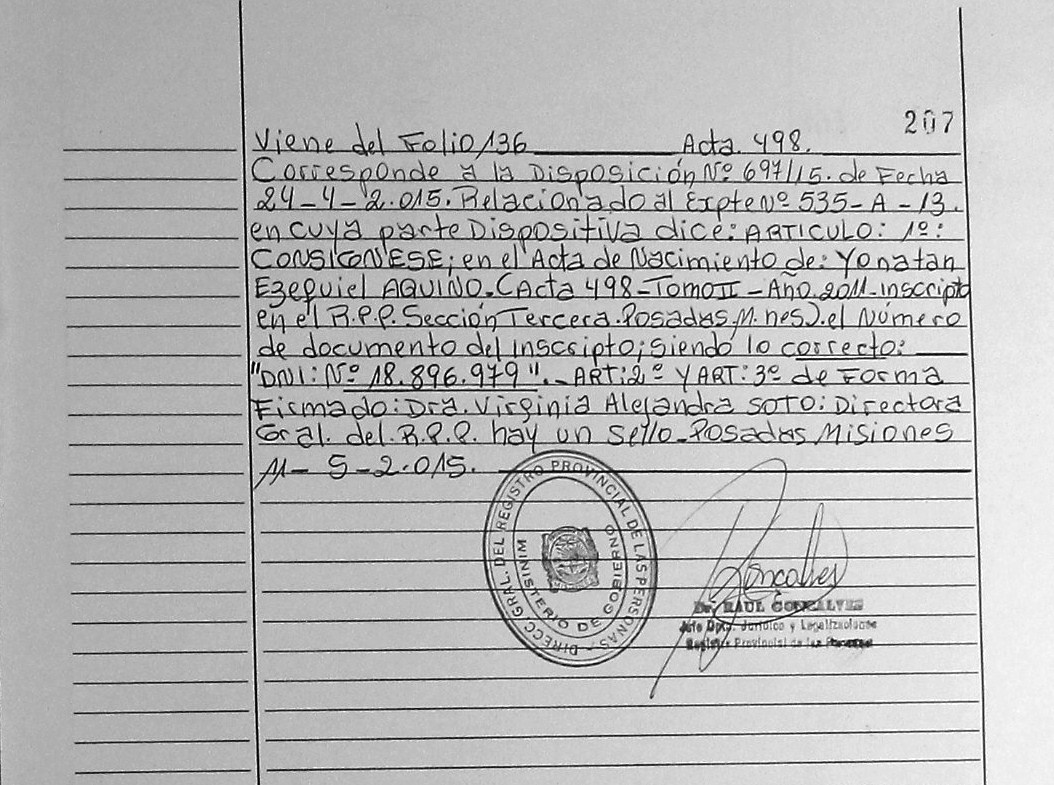 207
Viene del Folio 136 Acta 498.
Corresponde a la Disposición Nº 697/15. de Fecha
24-4-2.015. Relacionado al Expte Nº 535-A-13.
en cuya parte Dispositiva dice: ARTICULO: 1º:
CONSICONESE; en el Acta de Nacimiento de: Yonatan
Ezequiel AQUINO. (Acta 498-Tomo II-Año 2011-inscripto
en el R.P.P. Sección Tercera. Posadas, M.nes). el Número
de documento del inscripto; siendo lo correcto:
"DNI: Nº 18.896.979". ART: 2º Y ART: 3º de Forma
Firmado: Dra. Virginia Alejandra SOTO: Directora
Gral. del R.P.P. hay un sello-Posadas Misiones
11-5-2.015.
DIRECC. GRAL. DEL REGISTRO PROVINCIAL DE LAS PERSONAS -
MINISTERIO DE GOBIERNO
Goncalves
Dr. RAUL GONCALVES
Jefe Dpto. Jurídico y Legalizaciones
Registro Provincial de las Personas